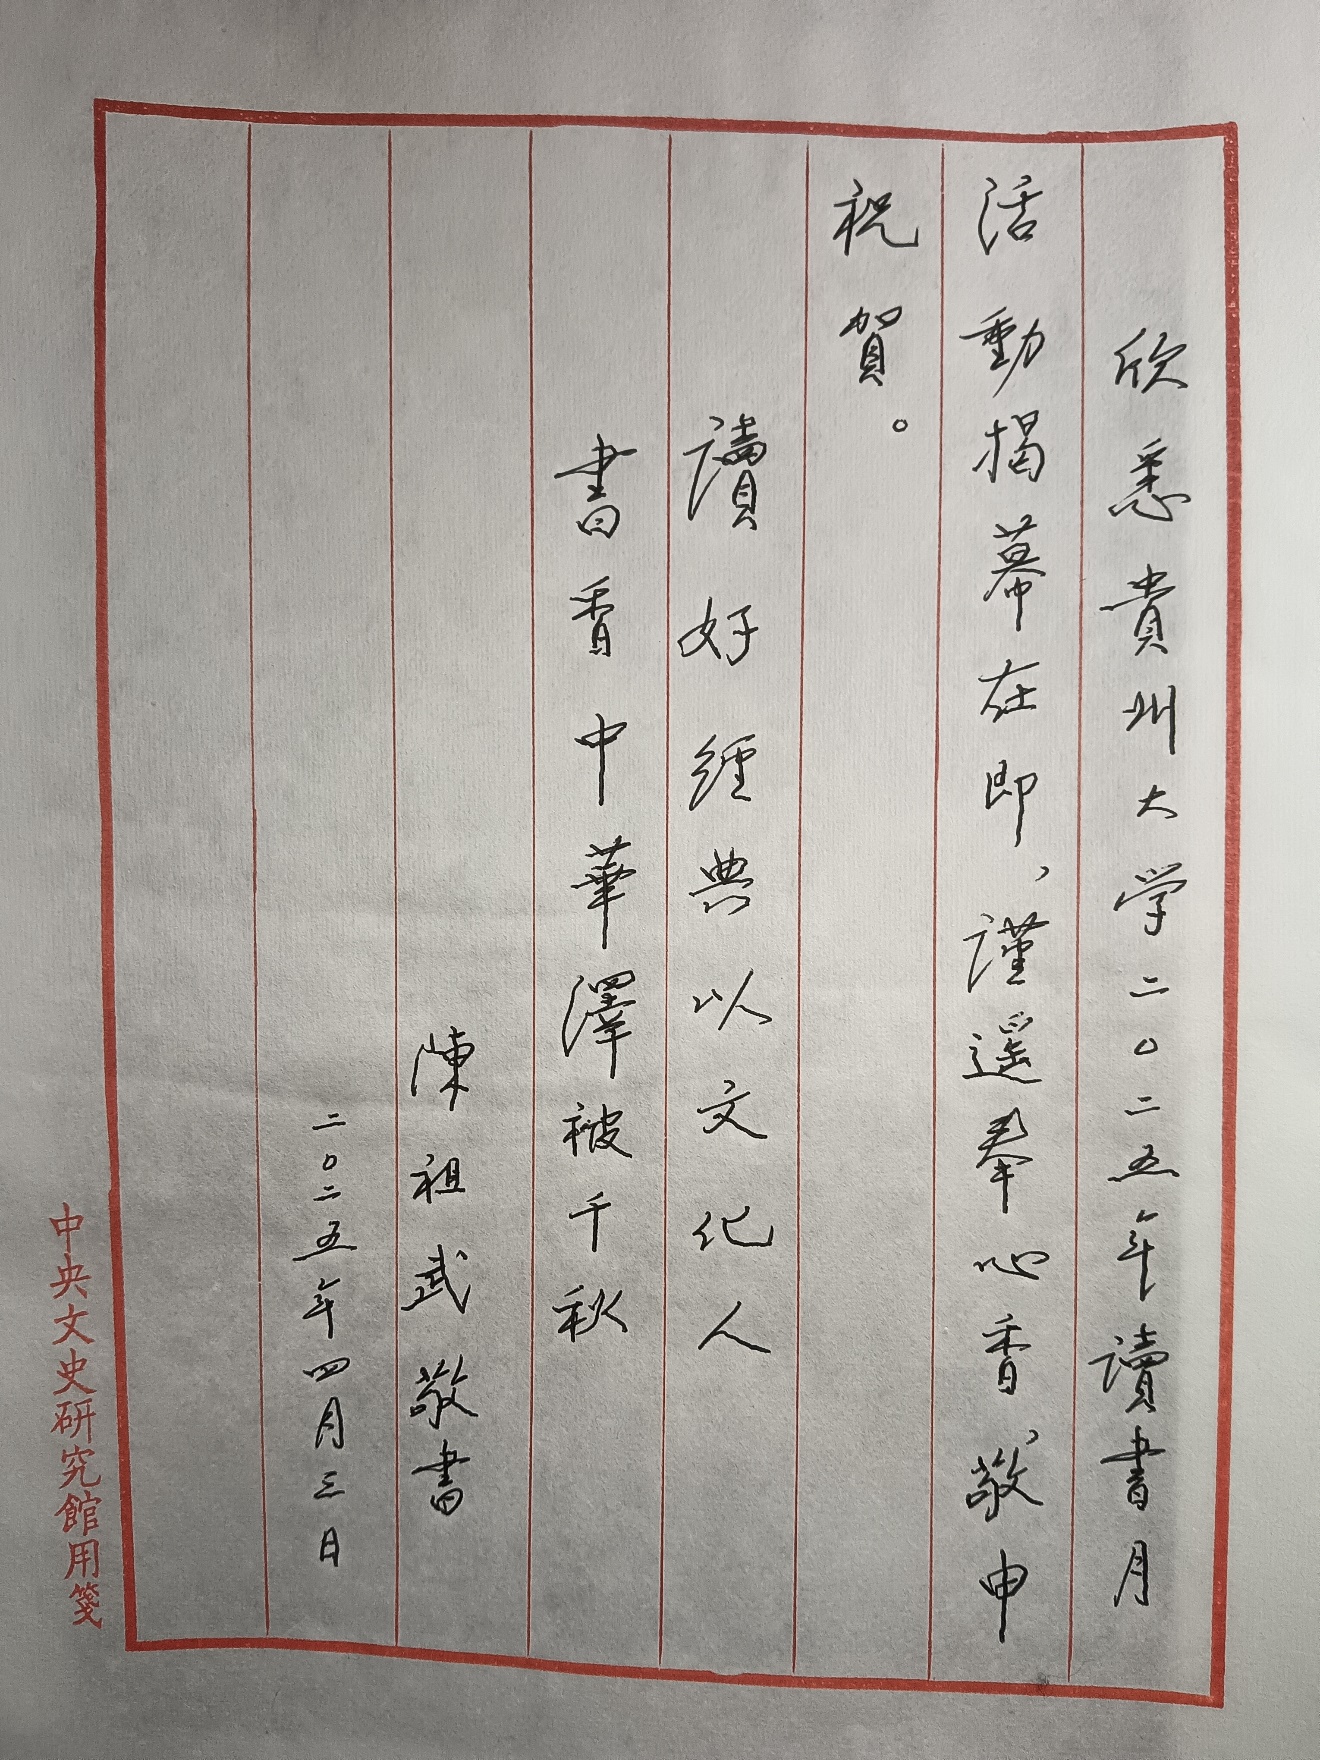 欣悉貴州大学二〇二五年讀書月
活動揭幕在即，謹遥奉心香，敬申
祝賀。
讀好經典以文化人
書香中華澤被千秋
陳祖武敬書
二〇二五年四月三日
中央文史研究館用箋